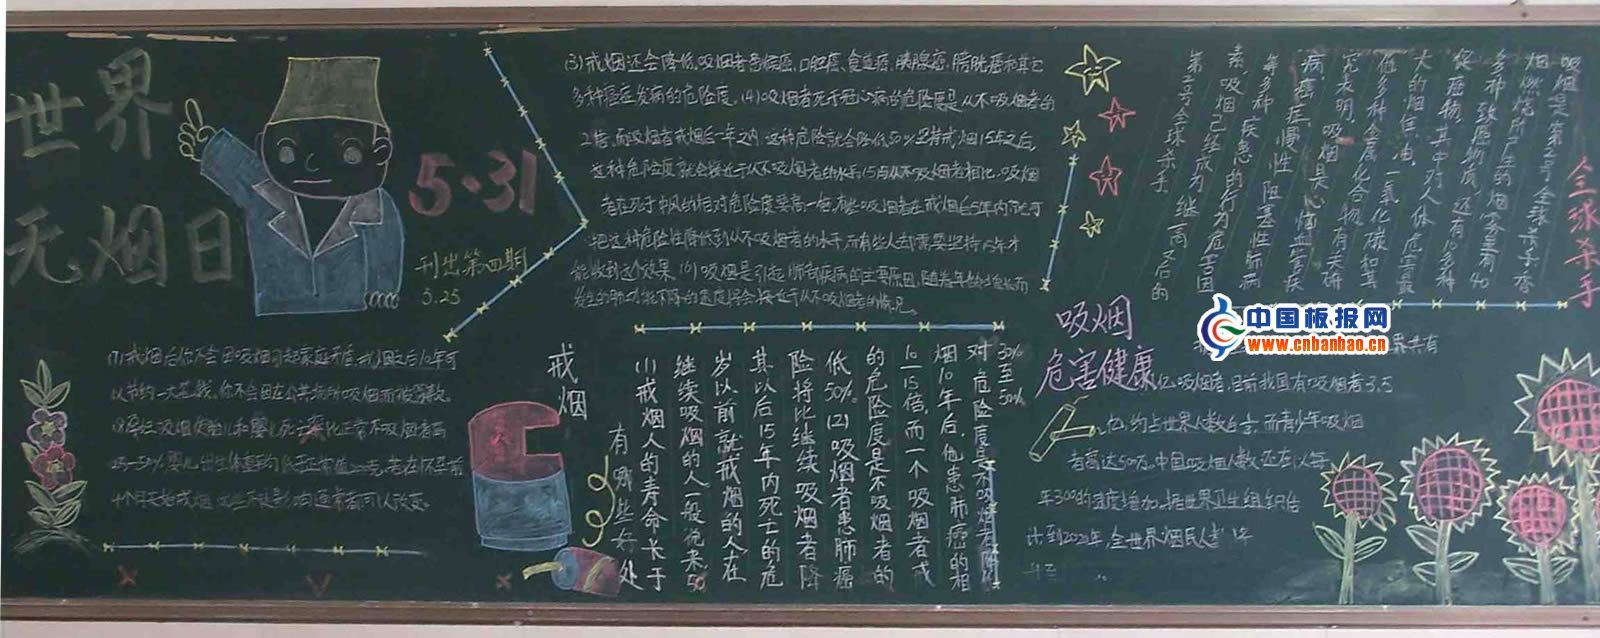 世界
无烟日
5·31
刊出第四期
5.25
(3)戒烟还会降低吸烟者患喉癌、口腔癌、食道癌、胰腺癌、膀胱癌和其它
多种癌症发病的危险度。(4)吸烟者死于冠心病的危险度是从不吸烟者的
2倍,而吸烟者戒烟后一年之内,这种危险就会降低50%,坚持戒烟15年之后,
这种危险度就会接近于从不吸烟者的水平。(5)与从不吸烟者相比,吸烟
者在死于中风的相对危险度要高一倍,有些吸烟者在戒烟后5年内就可
把这种危险性降低到从不吸烟者的水平,而有些人却需要坚持15年才
能收到这个效果。(6)吸烟是引起肺部疾病的主要原因,随着年龄增长而
发生的肺功能下降的速度将会接近于从不吸烟者的情况。
全球杀手
吸烟是第一号全球杀手,香
烟燃烧所产生的烟雾里有40
多种致癌物质,还有10多种
促癌物,其中对人体危害最
大的烟焦油、一氧化碳和其
他多种金属化合物,有关研
究表明,吸烟是心脑血管疾
病、癌症、慢性阻塞性肺病
等多种疾患的行为危害因
素,吸烟已经成为继高
第二号全球杀手
吸烟
危害健康
中国板报网
www.cnbanbao.cn
界共有
亿吸烟者,目前我国有吸烟者3.5
亿,约占世界人数白
而青少年吸烟
者高达500万,中国吸烟人数还在以每
年300的速度增加,据世界卫生组织估
计到2020年,全世界烟民人
(7)戒烟后你不会因吸烟引起家庭矛盾,戒烟之后10年可
以节约一大笔钱。你不会因在公共场所吸烟而被罚款。
25-50%,婴儿出生体重平均低于正常值200克,若在怀孕前
4个月开始戒烟
戒烟
有哪些好处
(1)戒烟人的寿命长于
继续吸烟的人,一般说来,50
岁以前就戒烟的人在
其以后15年内死亡的危
险将比继续吸烟者降
低50%。(2)吸烟者患肺癌
的危险度是不吸烟者的
10—15倍,而一个吸烟者戒
烟10年后,他患肺癌的相
对危险度是不吸烟者
30%至50%